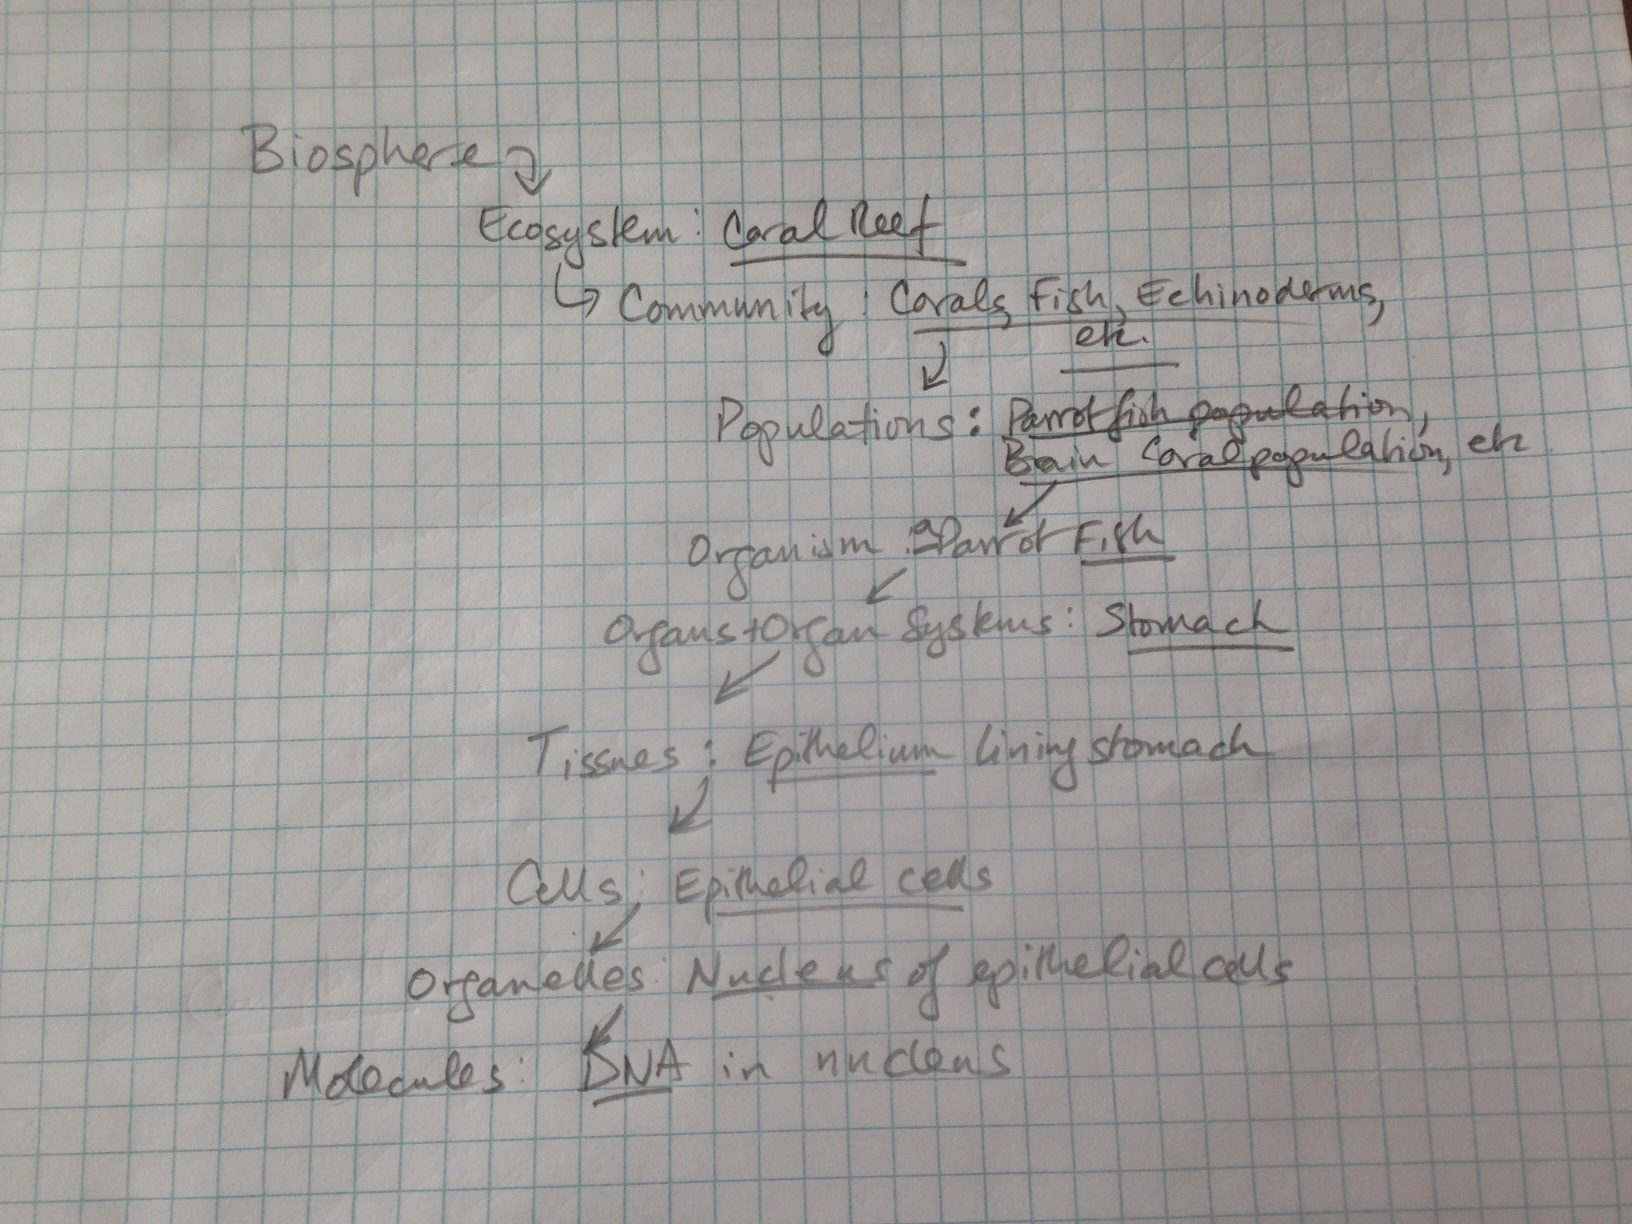 Biosphere
Ecosystem: Coral Reef
Community: Corals, Fish, Echinoderms,
etc.
Populations: Parrot fish population,
Brain Coral population, etc
Organism: a Parrot Fish
Organs + Organ Systems: Stomach
Tissues: Epithelium lining stomach
Cells: Epithelial cells
Organelles: Nucleus of epithelial cells
Molecules: DNA in nucleus